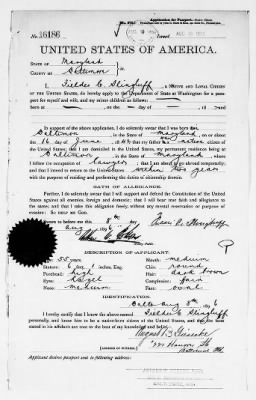 No. 16186
Issued
UNITED STATES OF AMERICA.
STATE OF Maryland
COUNTY OF Baltimore
I, Fielder C. Slingluff, A NATIVE AND LOYAL CITIZEN
OF THE UNITED STATES, do hereby apply to the Department of State at Washington for a
passport for myself and wife, and my minor children as follows:
In support of the above application, I do solemnly swear that I was born at
Baltimore, in the State of Maryland, on or about the
16 day of June, that my father is a native
United States; that I am domiciled in the United States, my permanent residence being at
Baltimore, in the State of Maryland, where I
follow the occupation of lawyer; that I am about to go abroad temporarily;
and that I intend to return to the United States within two years
with the purpose of residing and performing the duties of citizenship therein.
OATH OF ALLEGIANCE.
Further, I do solemnly swear that I will support and defend the Constitution of the United
States against all enemies, foreign and domestic; that I will bear true faith and allegiance to
the same; and that I take this obligation freely, without any mental reservation or purpose of
evasion: SO HELP ME GOD.
Sworn to before me this 8th day
Aug 1896
Notary Public.
DESCRIPTION OF APPLICANT.
Age: 55 years
Mouth: medium
Stature: 6 feet inches, Eng.
Chin: round
Forehead: high
Hair: dark brown
Eyes: hazel
Complexion: fair
Nose: medium
Face: oval
IDENTIFICATION.
Balto Aug 8th 1896
I hereby certify that I know the above-named Fielder C. Slingluff
personally, and know him to be a native-born citizen of the United States, and that the facts
stated in his affidavit are true to the best of my knowledge and belief.
[ADDRESS OF WITNESS.]
Applicant desires passport sent to following address: